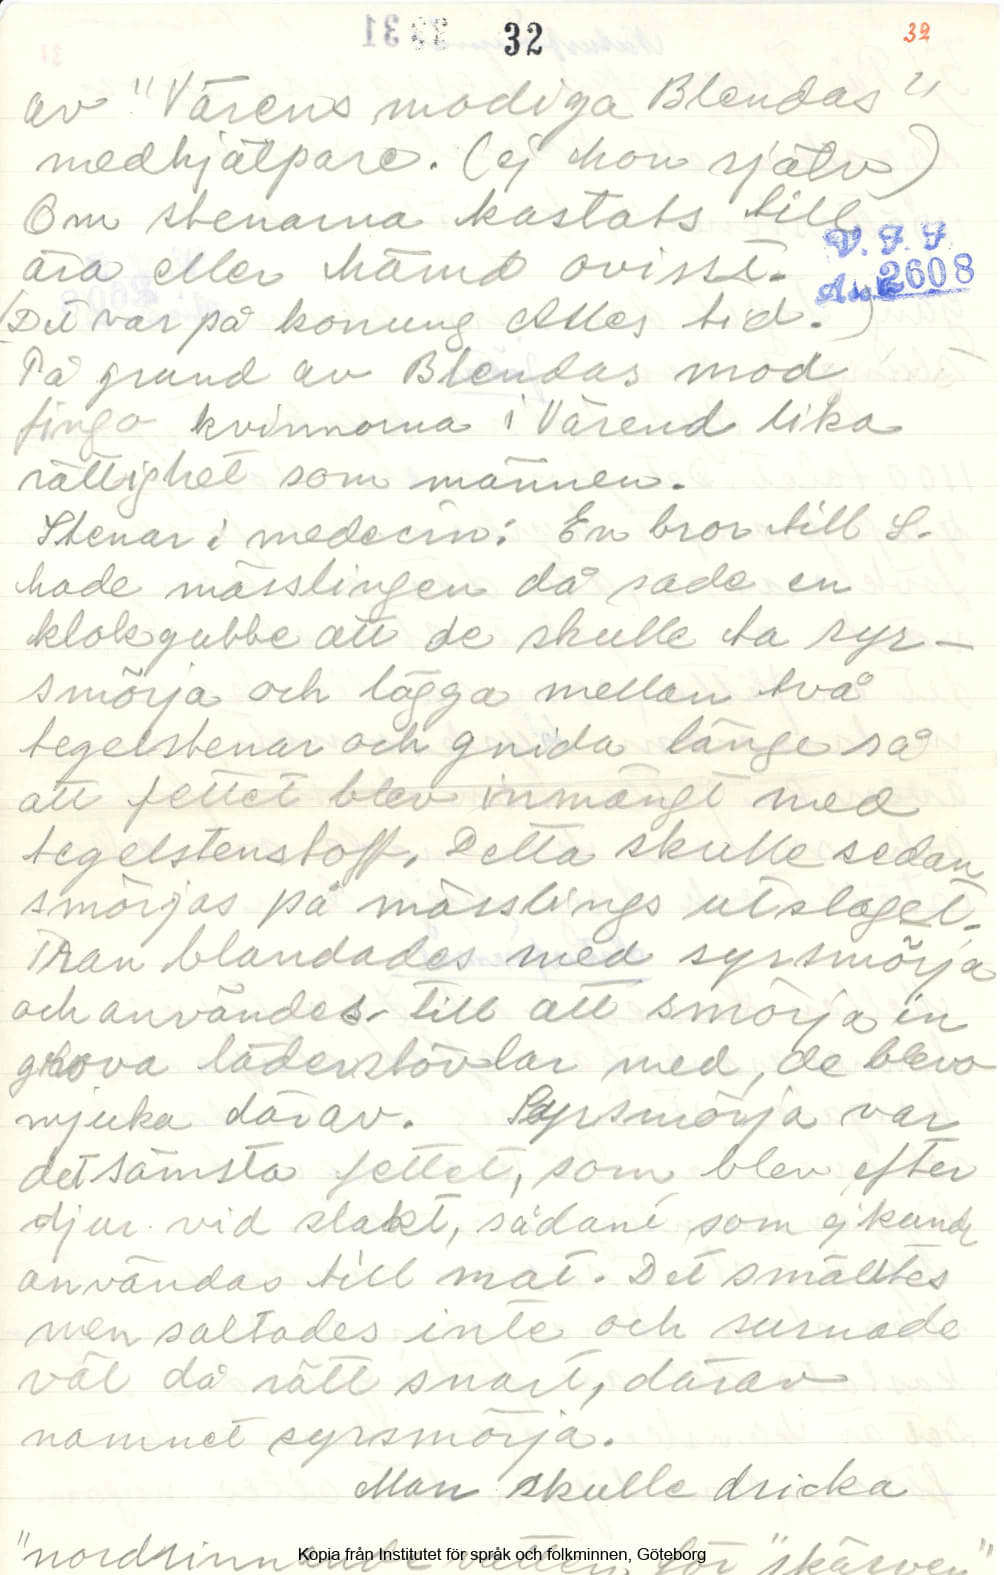 32
32
av "Värens modiga Blendas"
medhjälpare. (ej hon själv)
Om stenarna kastats till
ära eller hämd ovisst.
V. F. F.
Ass. 2608
(Det var på konung Alles tid.)
På grund av Blendas mod
fingo kvinnorna i Värend lika
rättighet som männen.
Stenar i medecin: En bror till S.
hade mässlingen då sade en
klokgubbe att de skulle ta syr-
smörja och lägga mellan två
tegelstenar och gnida länge så
att fettet blev inmängt med
tegelstenstoff. Detta skulle sedan
smörjas på mässlings utslaget.
Tran blandades med syrsmörja
och användes till att smörja in
grova läderstövlar med, de blevo
mjuka därav. Syrsmörja var
det sämsta fettet, som blev efter
djur vid slakt, sådant som ej kunde
användas till mat. Det smältes
men saltades inte och surnade
väl då rätt snart, därav
namnet syrsmörja.
Man skulle dricka
"nordrinnande vatten för "skärven"
Kopia från Institutet för språk och folkminnen, Göteborg